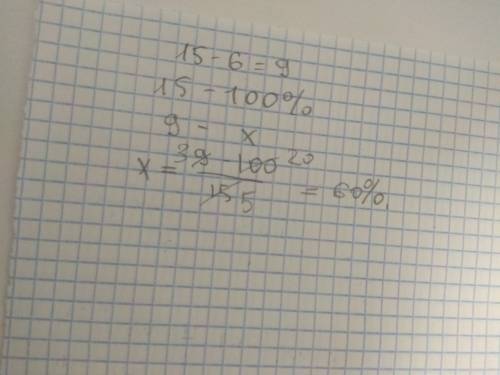 15 - 6 = 9
15 - 100%
9 - x
x = 39 · 100 20 / 15 5 = 60%.